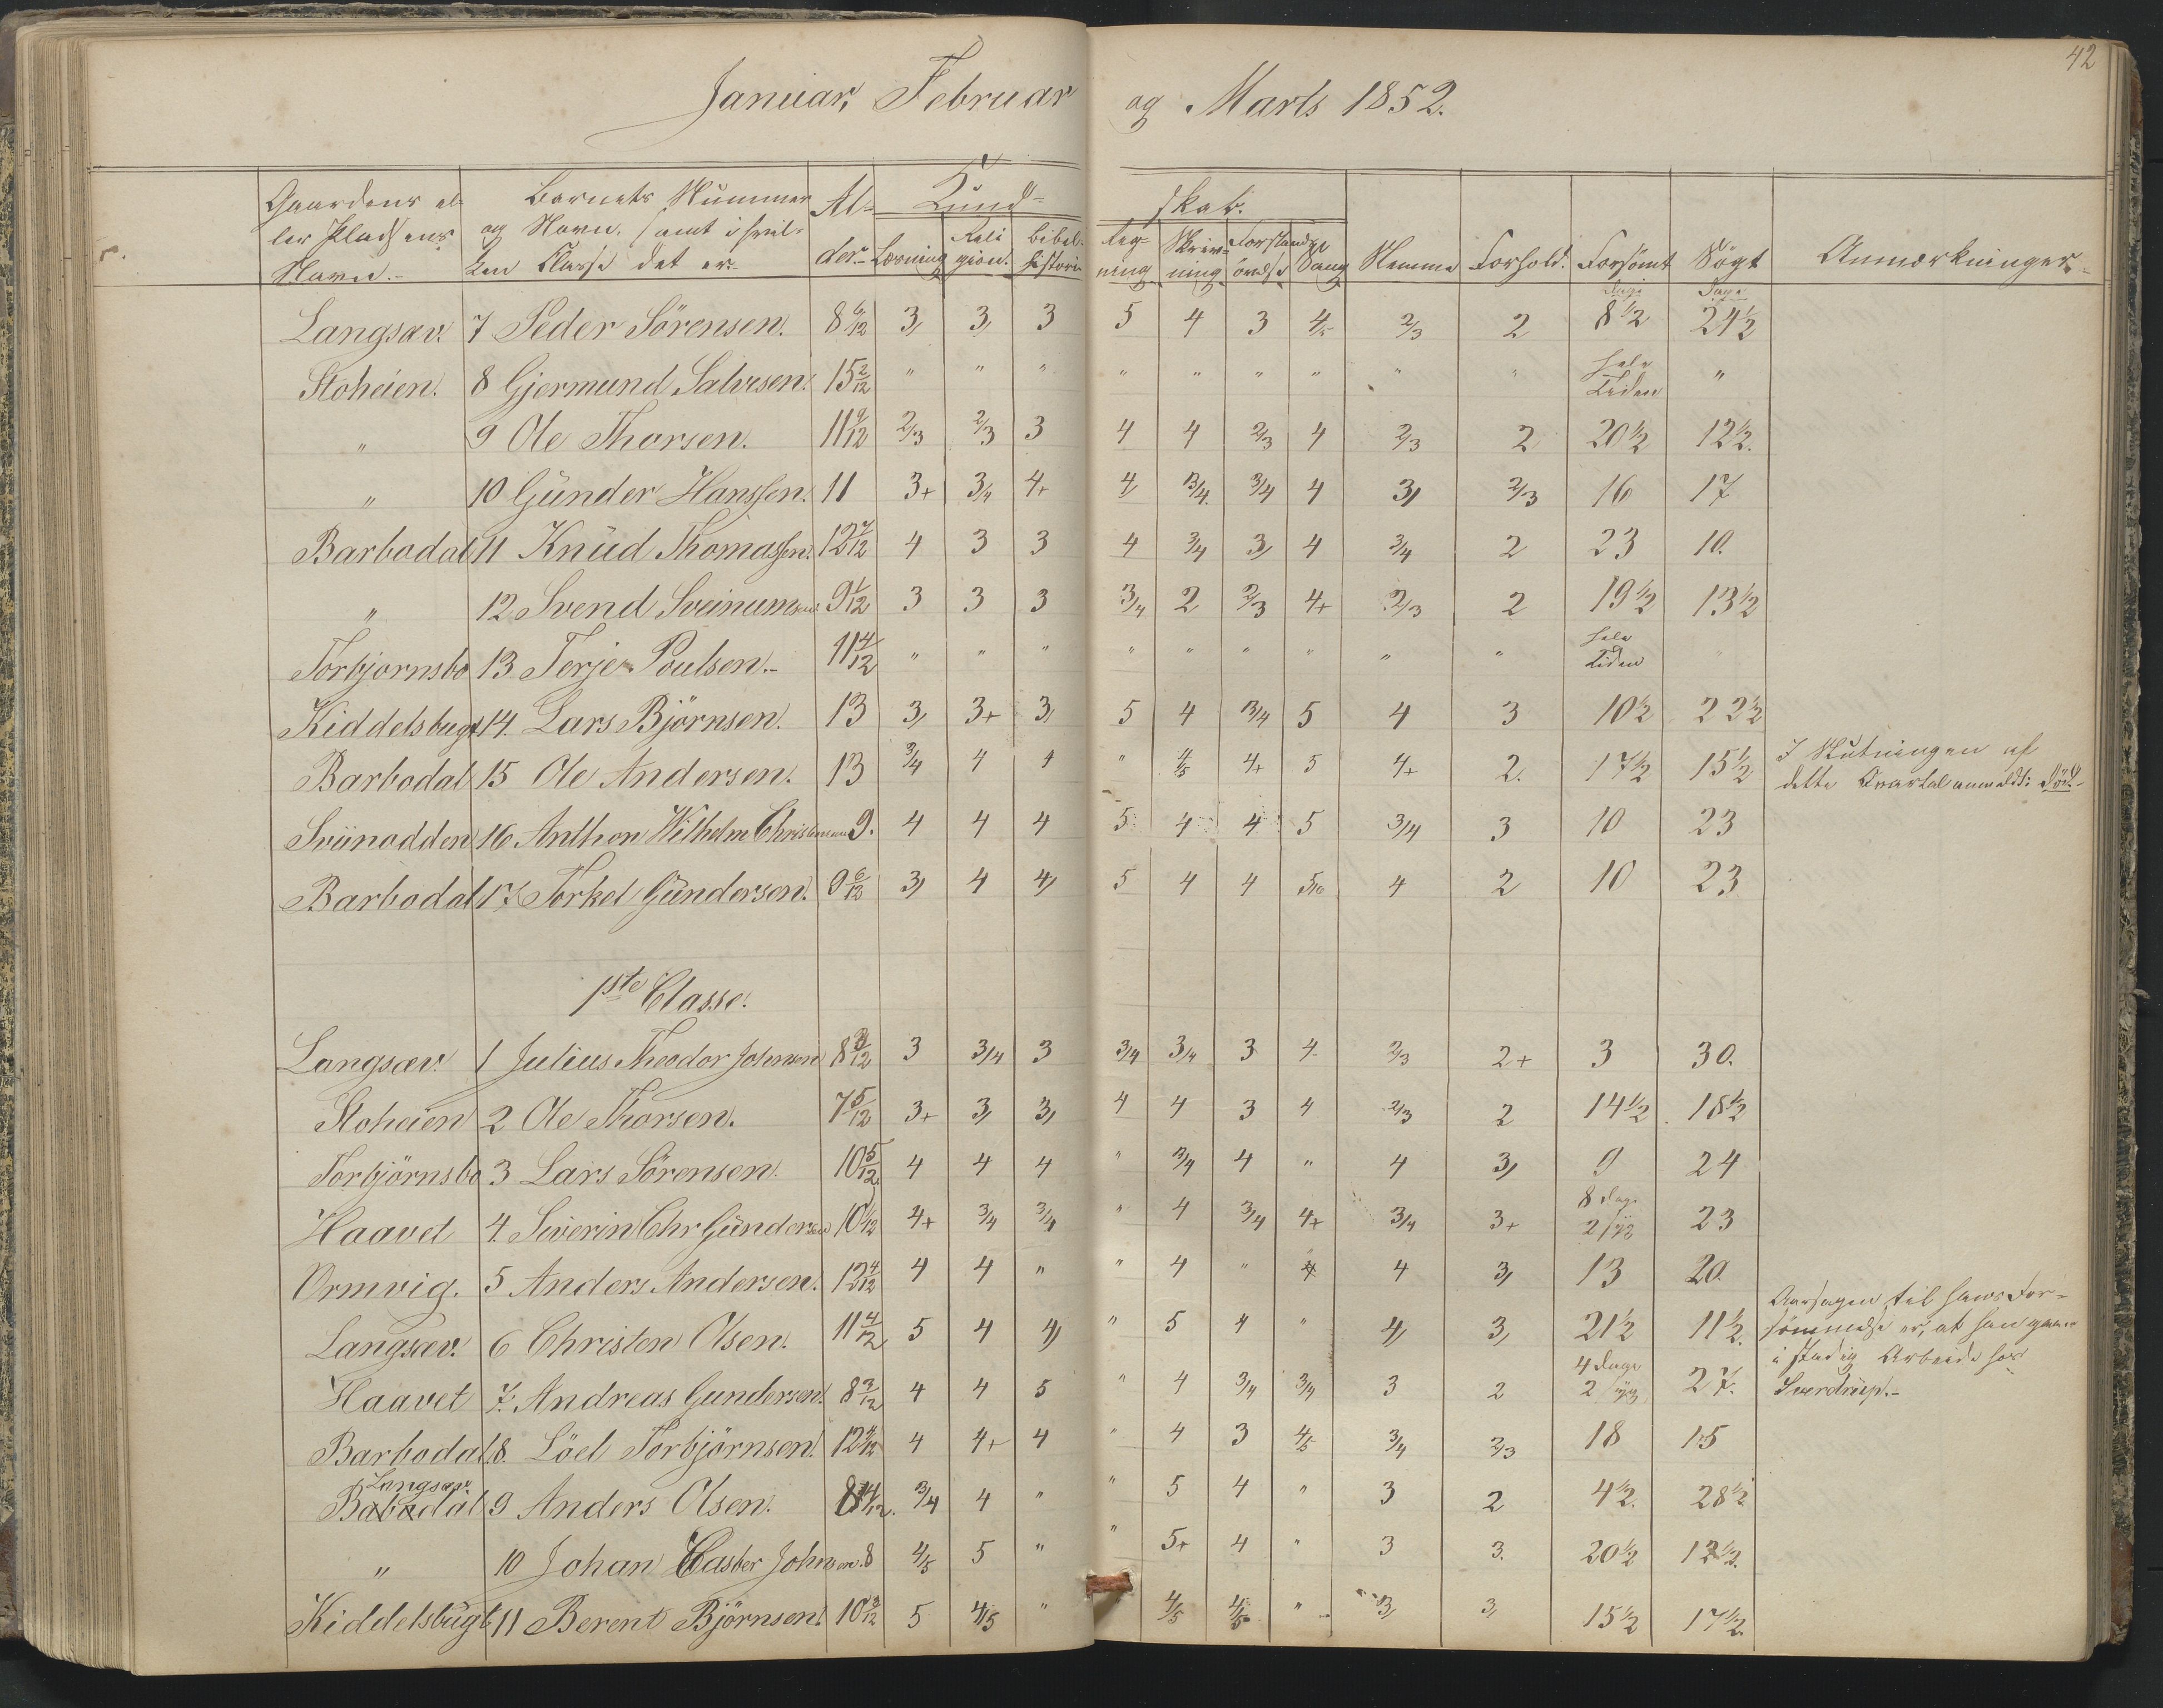 42
Januar, Februar og Marts 1852.
Gaardens el- ler Pladsens Navn.- | Barnets Nummer og Navn, samt i hvil- ken Classe det er.- | Al- der.- | Kund- skab. | Læsning | Reli gion. | Bibel- historie | Reg- ning | Skriv- ning | Forstands- övelse | Sang | Nemme | Forhold. | Forsömt | Sögt | Anmærkninger.
Langsæv. 7 Peder Sörensen. 8 6/12 3, 3, 3 5 4 3 4- 2/3 2 Dage 8 1/2 Dage 24 1/2
Stoheien. 8 Gjermund Salvesen. 15 2/12 " " " " " " " " " hele Tiden "
" 9 Ole Thorsen. 11 9/12 2/3 2/3 3 4 4 2/3 4 2/3 2 20 1/2 12 1/2.
" 10 Günder Hanssen. 11 3+ 3/4 4+ 4, 3/4. 3/4 4 3, 2/3 16 17
Barbodal 11 Knüd Thomassen. 12 7/12 4 3 3 4 3/4 3, 4 3/4 2 23 10.
" 12 Svend Sveinumsen 9 1/12 3 3 3 3/4 2 2/3 4+ 2/3 2 19 1/2 13 1/2
Torbjornsbo 13 Terje Poulsen.- 11 4/12 " " " " " " " " " hele Tiden "
Kiddelsbugt 14. Lars Björnsen. 13 3, 3+ 3, 5 4 3/4 5 4 3 10 1/2 22 1/2
Barbodal 15 Ole Andersen. 13 3/4 4 4 " 4/5 4+ 5 4+ 2. 17 1/2 15 1/2 I Slutningen af
dette Qvartal anmeldt: död.-
Sviinodden 16 Anthon Wilhelm Christensen 9. 4 4 4 5 4 4 5 3/4 3 10 23
Barbodal 17 Torkel Gündersen. 9 6/12 3, 4 4, 5 4 4 5/6 4 2 10 23
1ste Classe.
Langsæv. 1 Julius Theodor Johnsen 8 3/12 3 3/4 3 3/4 3/4 3 4- 2/3 2+ 3 30.
Stoheien 2 Ole Thorsen. 7 5/12 3+ 3, 3, 4 4 3 4 2/3 2 14 1/2 18 1/2
Torbjörnsbo 3 Lars Sörensen. 10 5/12 4 4 4 " 3/4 4 " 4 3, 9 24
Haavet 4. Severin Chr Gündersen 10 1/12 4+ 3/4 3/4 " 4 3/4 4+ 3/4 3+ 8 dage 2 syg 23
Ormvig. 5 Anders Andersen. 12 4/12 4 4 " " 4 " " 4 3, 13 20.
Langsæv. 6 Christen Olsen. 11 4/12 5 4 4, " 5 4 " 4, 3, 21 1/2 11 1/2. Aarsagen til hans For-
sömmelse er, at han gaaer
i stadig Arbeide hos
Sverdrüp.-
Haavet 7. Andreas Gundersen. 8 3/12 4 4 5 " 4 3/4 3/4 3 2 4 dage 2 syg 27.
Barbodal 8. Löel Torbjörnsen. 12 9/12 4 4+ 4 " 4 3 4/5 3/4 2/3 18 15
Langsæv.
Babodal 9 Anders Olsen. 8 4/12. 3/4 4 " " 5 4 " 3 2 4 1/2. 28 1/2
" 10 Johan Casber Johnsen. 8 4/5 5 " " 5+ 4 " 3 3. 20 1/2 12 1/2.
Kiddelsbügt 11 Berent Björnsen. 10 3/12 5 4/5 " 4/5 4/5 " 3, 3, 15 1/2 17 1/2